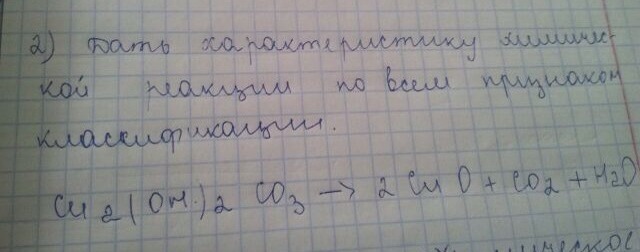 2) Дать характеристику химичес-
кой реакции по всем признаком
классификации.
Cu2(OH)2 CO3 → 2 CuO + CO2 + H2O